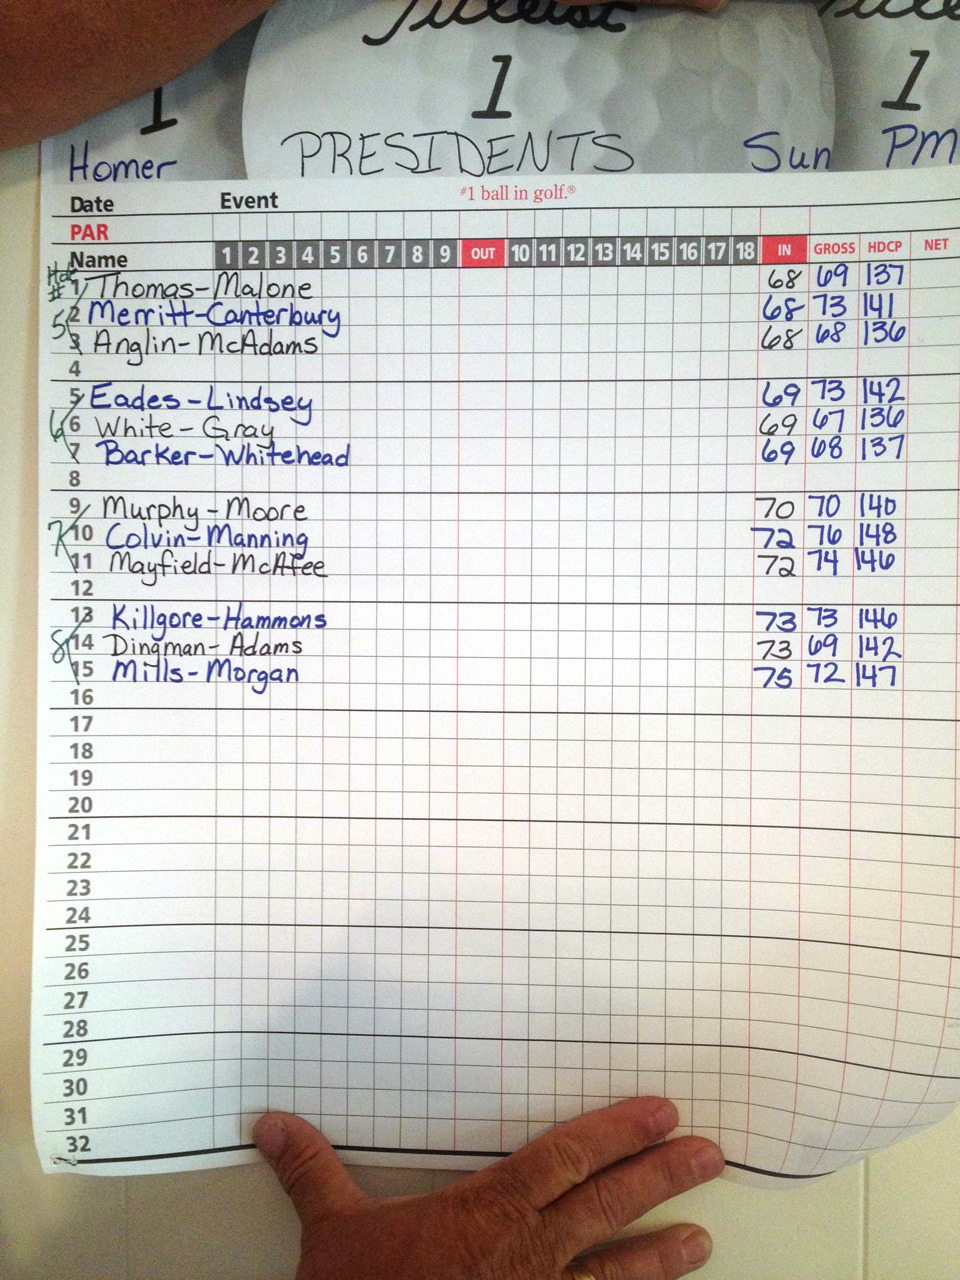 Titleist
1 1 1
Homer PRESIDENTS Sun PM
Date Event #1 ball in golf.®
PAR
Name 1 2 3 4 5 6 7 8 9 OUT 10 11 12 13 14 15 16 17 18 IN GROSS HDCP NET
Hole #
1 Thomas-Malone 68 69 137
5 2 Merritt-Canterbury 68 73 141
3 Anglin-McAdams 68 68 136
4
5 Eades-Lindsey 69 73 142
6 6 White-Gray 69 67 136
7 Barker-Whitehead 69 68 137
8
9 Murphy-Moore 70 70 140
7 10 Colvin-Manning 72 76 148
11 Mayfield-McAfee 72 74 146
12
13 Killgore-Hammons 73 73 146
8 14 Dingman-Adams 73 69 142
15 Mills-Morgan 75 72 147
16
17
18
19
20
21
22
23
24
25
26
27
28
29
30
31
32